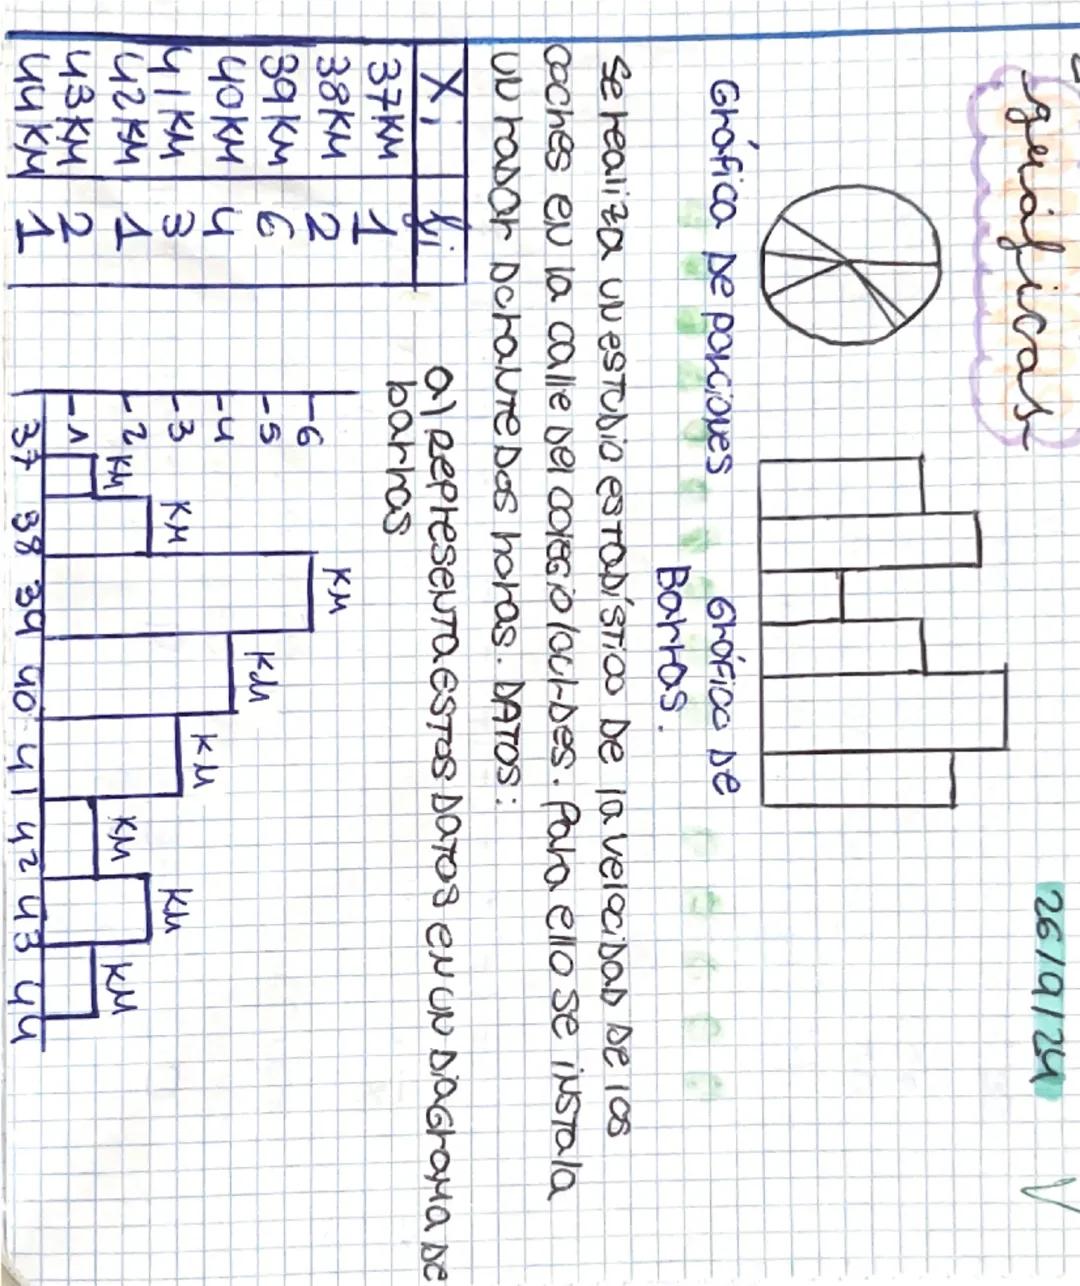 gráficas
26/9/24
Gráfica De porciones
Gráfico De
Barras.
se realiza un estudio estadístico De la velocidad De los
coches en la calle Del colegio lourdes. Para ello se instala
un radar Durante Dos horas. DATOS:
Xi fi
37KM 1
38KM 2
39KM 6
40KM 4
41KM 3
42KM 1
43KM 2
44KM 1
a) Representa estos Datos en un Diagrama De
barras
-6
-5
-4
-3
-2
-1
KM
KM
KM
KM
KM
KM
KM
KM
37 38 39 40 41 42 43 44